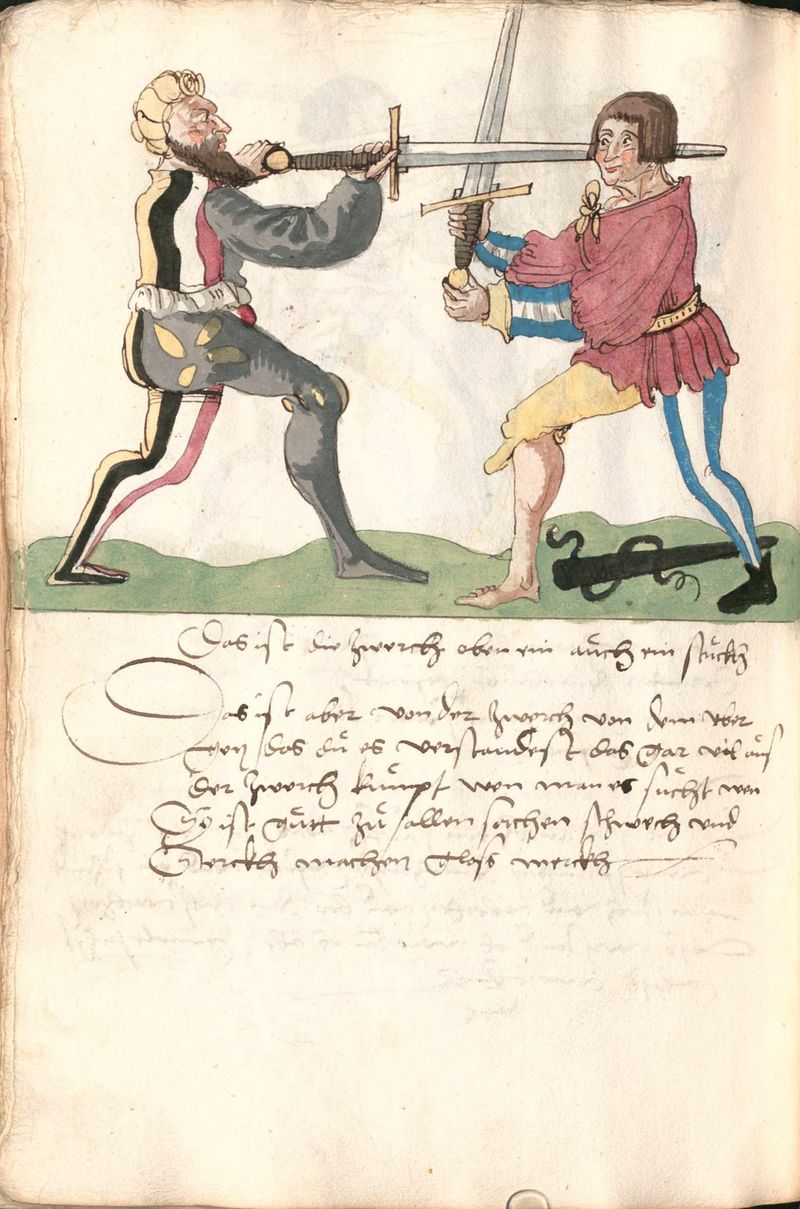 Das ist die zwerch oben ein auch ein stückh
Das ist aber von der zwerch von dem uber
das dü es verstandest das gar vil aus
der zwerch kumpt wen man es sücht wen
So ist gütt zü allen sachen schwech und
Sterckh machen glass werckh